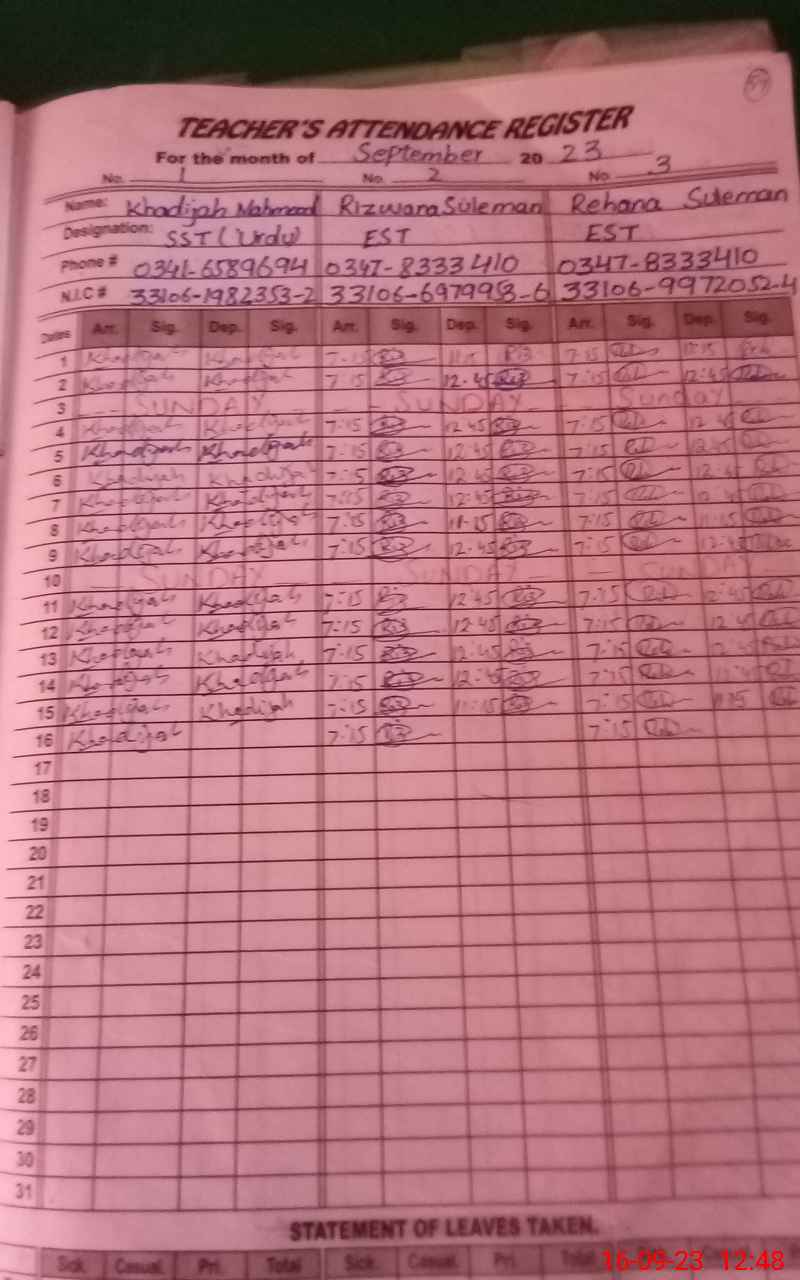 54
TEACHER'S ATTENDANCE REGISTER
For the month of September 20 23
No. 1 No. 2 No. 3
Name: Khadijah Mahmood Rizwana Suleman Rehana Suleman
Designation: SST (Urdu) EST EST
Phone # 0341-6589694 0347-8333410 0347-8333410
N.I.C # 33106-1982353-2 33106-697995-6 33106-9972052-4
Dates Arr. Sig. Dep. Sig. Arr. Sig. Dep. Sig. Arr. Sig. Dep. Sig.
1 Khadijah Khadijah 7:15 11:15 7:15
2 Khadijah Khadijah 7:15 12:45 7:15 12:45
3 SUNDAY SUNDAY Sunday
4 Khadijah Khadijah 7:15 12:45 7:15 12:45
5 Khadijah Khadijah 7:15 12:45 7:15 12:45
6 Khadijah Khadijah 7:15 12:45 7:15 12:45
7 Khadijah Khadijah 7:15 12:45 7:15 12:45
8 Khadijah Khadijah 7:15 11:15 7:15 11:15
9 Khadijah Khadijah 7:15 12:45 7:15 12:45
10 SUNDAY SUNDAY SUNDAY
11 Khadijah Khadijah 7:15 12:45 7:15 12:45
12 Khadijah Khadijah 7:15 12:45 7:15 12:45
13 Khadijah Khadijah 7:15 12:45 7:15 12:45
14 Khadijah Khadijah 7:15 12:45 7:15 12:45
15 Khadijah Khadijah 7:15 11:15 7:15 11:15
16 Khadijah 7:15 7:15
17
18
19
20
21
22
23
24
25
26
27
28
29
30
31
STATEMENT OF LEAVES TAKEN.
Sick Casual Pri. Total Sick Casual Pri. Total
16-09-23 12:48